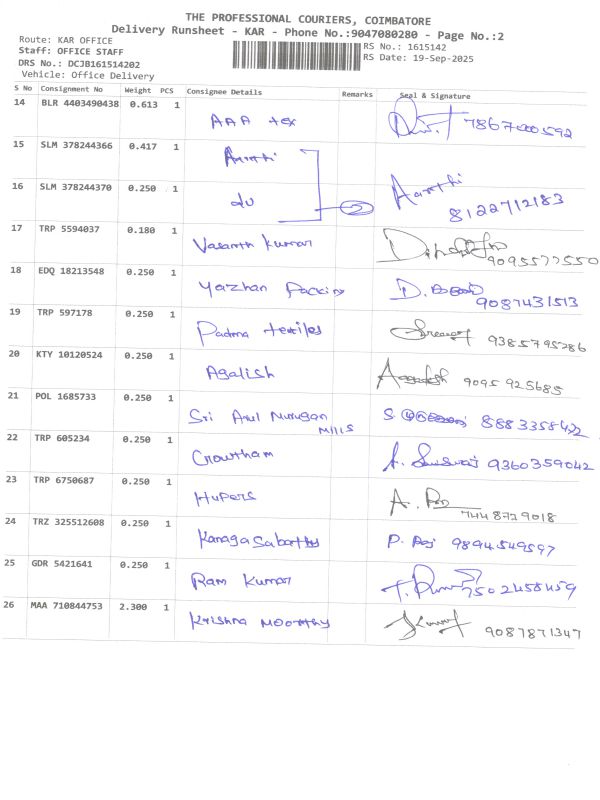 THE PROFESSIONAL COURIERS, COIMBATORE
Delivery Runsheet - KAR - Phone No.:9047080280 - Page No.:2
Route: KAR OFFICE
Staff: OFFICE STAFF
DRS No.: DCJB161514202
Vehicle: Office Delivery
RS No.: 1615142
RS Date: 19-Sep-2025
S No Consignment No Weight PCS Consignee Details Remarks Seal & Signature
14 BLR 4403490438 0.613 1 AAA tex 7867000592
15 SLM 378244366 0.417 1 Aarthi
16 SLM 378244370 0.250 1 do 2 Aarthi 8122712183
17 TRP 5594037 0.180 1 Vasanth Kumar 9095577550
18 EDQ 18213548 0.250 1 Yazhan Packing D. 9087431513
19 TRP 597178 0.250 1 Padma textiles 9385795286
20 KTY 10120524 0.250 1 Agalish 9095 925685
21 POL 1685733 0.250 1 Sri Arul Murugan Mills S. 8883358422
22 TRP 605234 0.250 1 Growtham 9360359042
23 TRP 6750687 0.250 1 Hupers A. 7448729018
24 TRZ 325512608 0.250 1 Kanaga Sabathy P. 9894549597
25 GDR 5421641 0.250 1 Ram Kumar 7502458459
26 MAA 710844753 2.300 1 Krishna Moorthy 9087871347